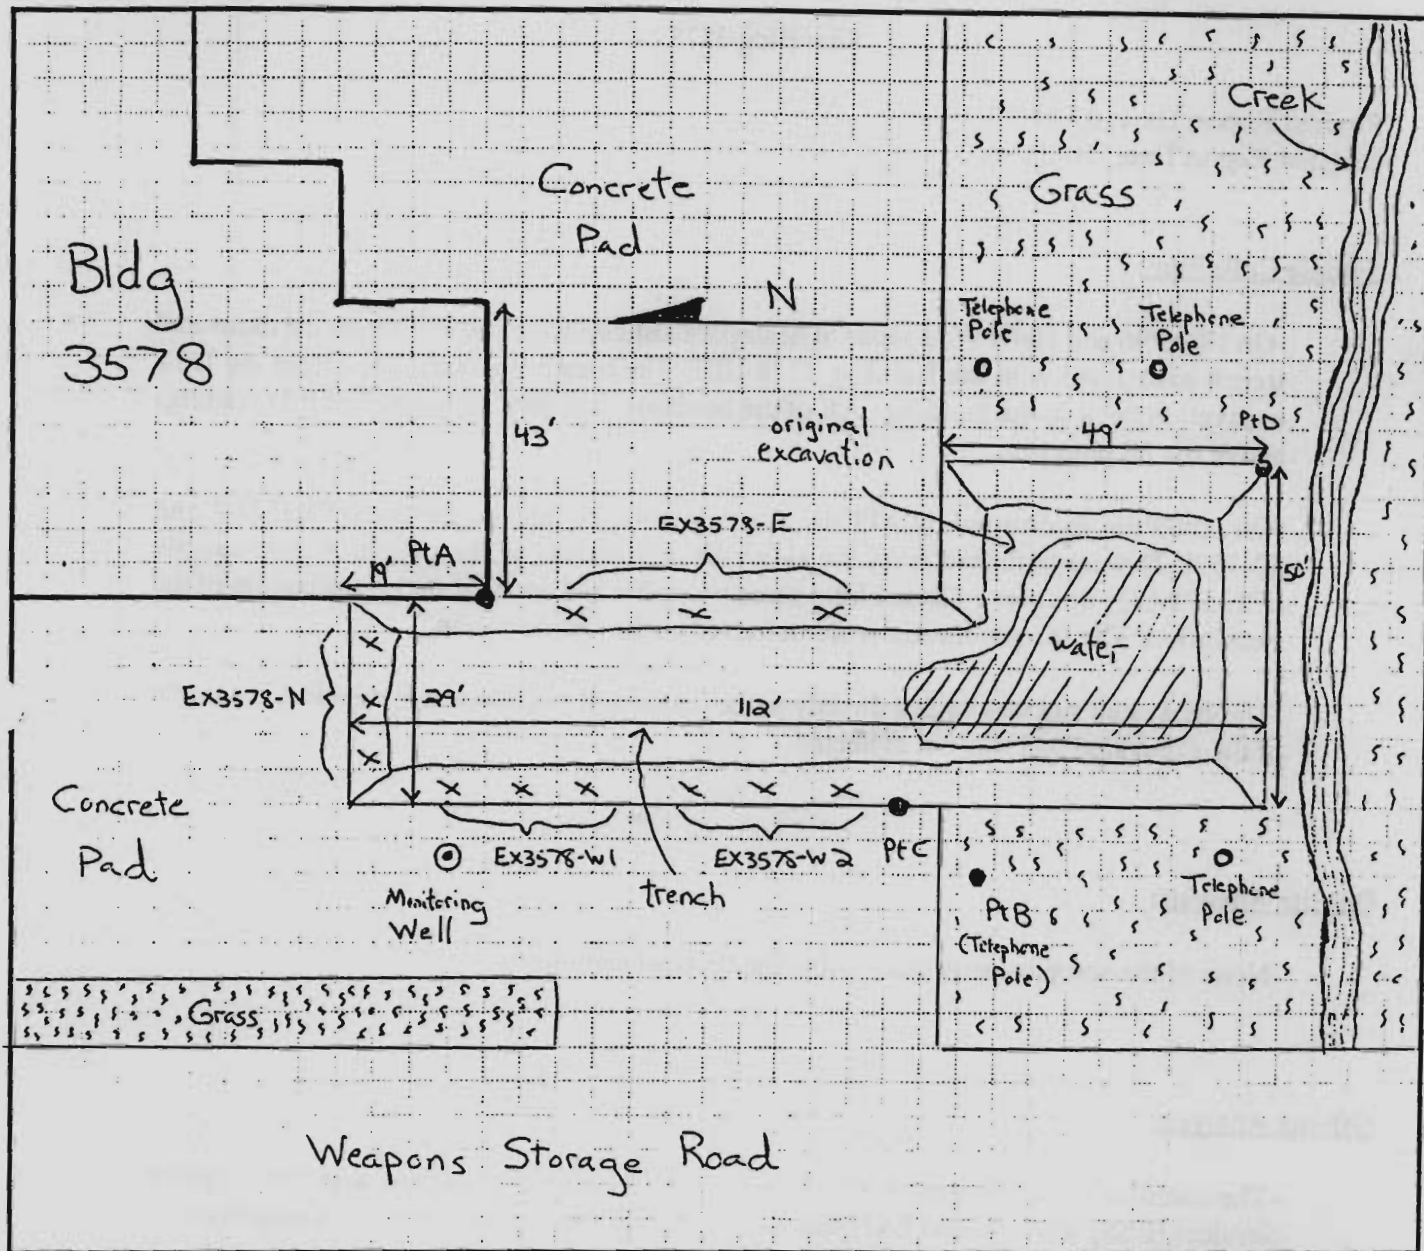 Creek
Concrete
Pad
Grass
Bldg
3578
N
Telephone
Pole
Telephone
Pole
43'
original
excavation
49'
PtD
EX3578-E
19'
PtA
50'
water
EX3578-N
29'
112'
Concrete
Pad
EX3578-W1
EX3578-W2
PtC
Monitoring
Well
trench
PtB
(Telephone
Pole)
Telephone
Pole
Grass
Weapons Storage Road